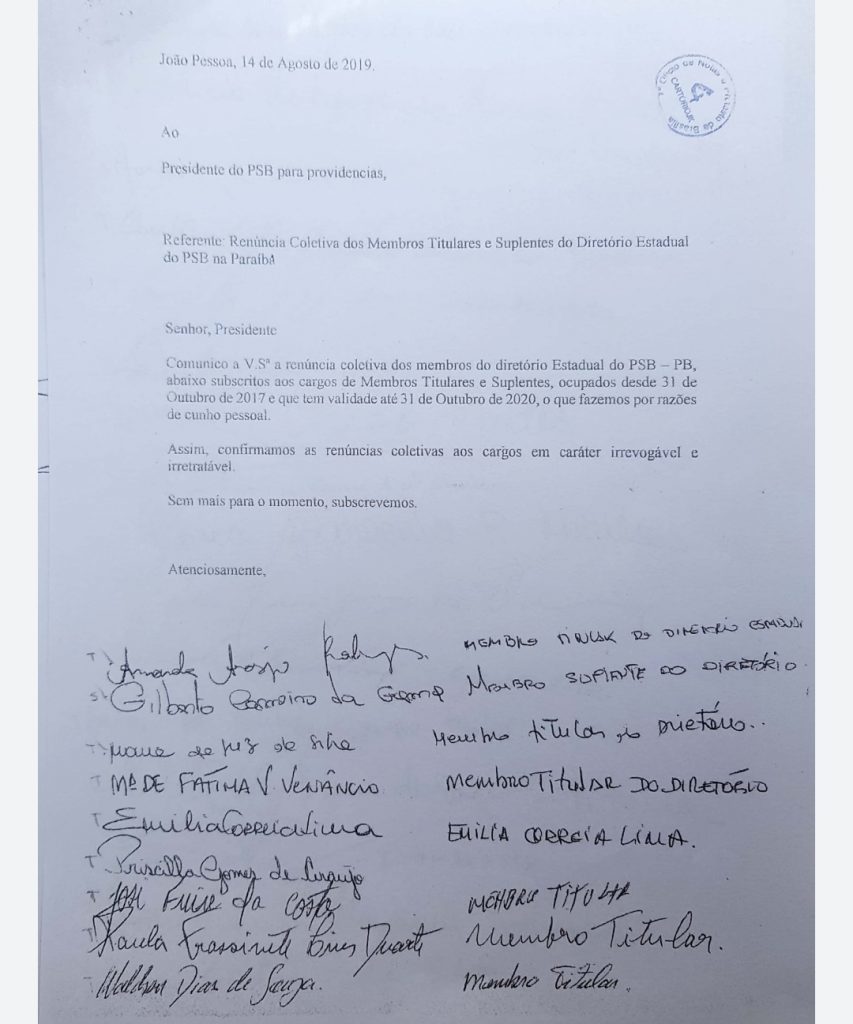 João Pessoa, 14 de Agosto de 2019.
CARTÓRIO JK
Ao
Presidente do PSB para providencias,
Referente: Renúncia Coletiva dos Membros Titulares e Suplentes do Diretório Estadual
do PSB na Paraíba
Senhor, Presidente
Comunico a V.Sª a renúncia coletiva dos membros do diretório Estadual do PSB – PB,
abaixo subscritos aos cargos de Membros Titulares e Suplentes, ocupados desde 31 de
Outubro de 2017 e que tem validade até 31 de Outubro de 2020, o que fazemos por razões
de cunho pessoal.
Assim, confirmamos as renúncias coletivas aos cargos em caráter irrevogável e
irretratável.
Sem mais para o momento, subscrevemos.
Atenciosamente,
T Amanda Araújo MEMBRO TITULAR DO DIRETÓRIO
S Gilberto Carneiro da Gama MEMBRO SUPLENTE DO DIRETÓRIO
T de Silva Membro titular do Diretório..
T Mª DE FÁTIMA V. VENÂNCIO MEMBRO TITULAR DO DIRETÓRIO
T Emilia Correia Lima EMILIA CORREIA LIMA.
T Priscilla Gomes de Araujo
T José da Costa MEMBRO TITULAR
T Paula Frassinete Lins Duarte Membro Titular.
Waldson Dias de Souza. Membro Titular.